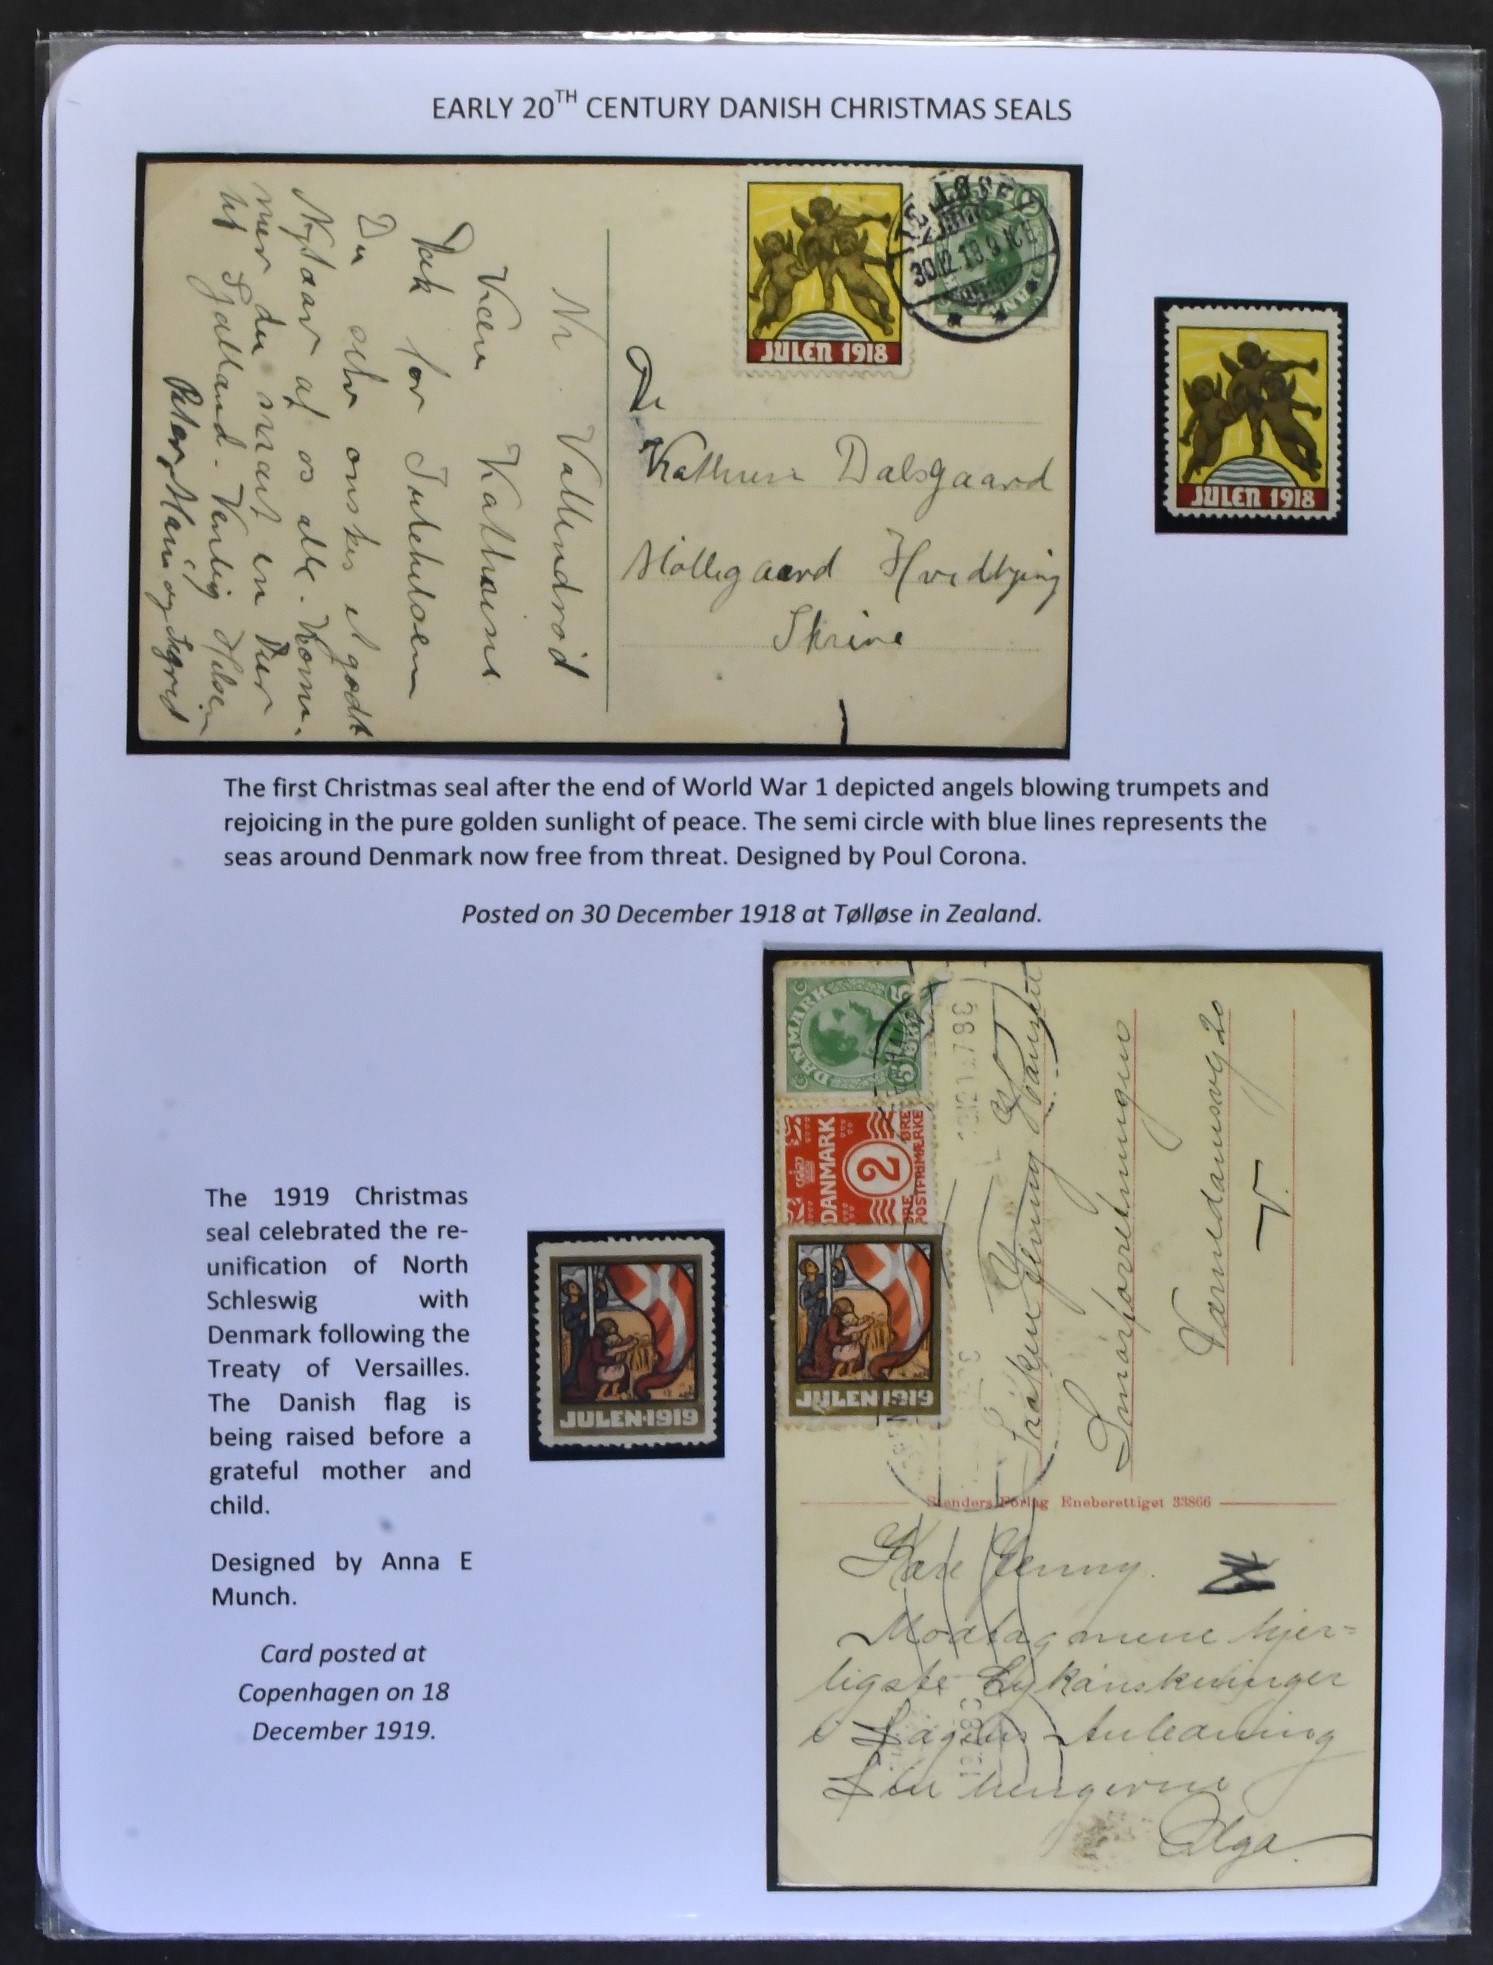 EARLY 20TH CENTURY DANISH CHRISTMAS SEALS
Nr Vallendrød
Kære Kathrine
Tak for Julehilsen
Du selv ønskes et godt
Nytaar af os alle. Kom
mer du snart en Tur
til Sjælland. Venlig Hilsen
JULEN 1918
TØLLØSE
30.12.18.9
Kathrine Dalsgaard
Møllegaard Hvidbjerg
JULEN 1918
The first Christmas seal after the end of World War 1 depicted angels blowing trumpets and
rejoicing in the pure golden sunlight of peace. The semi circle with blue lines represents the
seas around Denmark now free from threat. Designed by Poul Corona.
Posted on 30 December 1918 at Tølløse in Zealand.
The 1919 Christmas
seal celebrated the re-
unification of North
Schleswig with
Denmark following the
Treaty of Versailles.
The Danish flag is
being raised before a
grateful mother and
child.
Designed by Anna E
Munch.
Card posted at
Copenhagen on 18
December 1919.
JULEN·1919
DANMARK
5 ØRE 5
DANMARK
2
ØRE ØRE
POSTFRIMÆRKE
JULEN·1919
Frøken Jenny
Smørforretningen
Værnedamsvej 20
V.
Stenders Forlag Eneberettiget 33866
Kære Jenny.
Modtag mine hjer=
ligste Lykønskninger
i Dagens Anledning
Din hengivne
Olga.